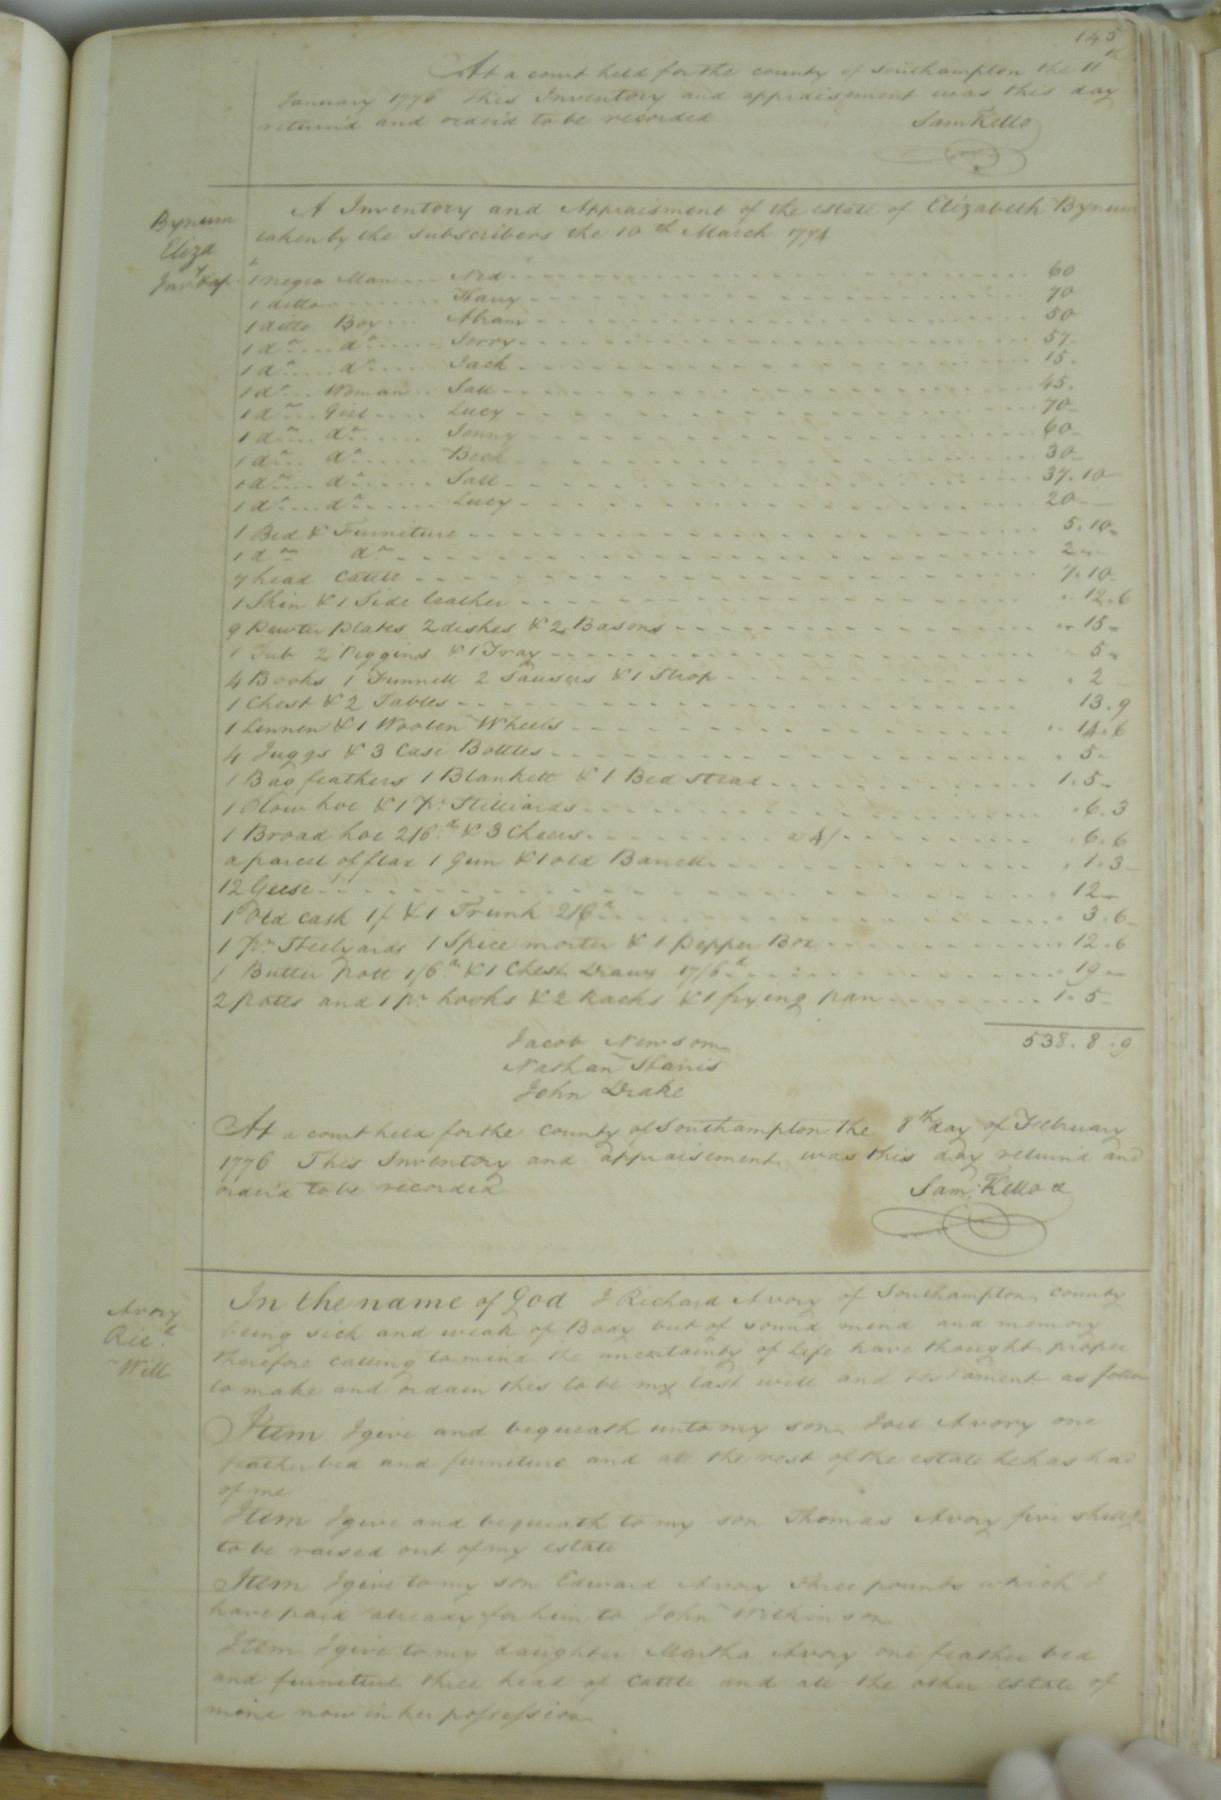 145
At a court held for the county of Southampton the 11th
January 1776 This Inventory and appraisement was this day
return'd and order'd to be recorded Sam Kello
Bynum
Eliza
Inv.y & ap
A Inventory and Appraisment of the estate of Elizabeth Bynum
taken by the Subscribers the 10th March 1774
1 negro Man Ned 60
1 ditto Harry 70
1 ditto Boy Abram 50
1 do do Jerry 57
1 do do Jack 15
1 do Woman Sall 45
1 do Girl Lucy 70
1 do do Jenny 60
1 do do Beck 30
1 do do Sall 37.10
1 do do Lucy 20
1 Bed & Furneture 5.10
1 do do 2
7 head Cattle 7.10
1 Skin & 1 Side leather 12.6
9 Pewter Plates 2 dishes & 2 Basons 15
1 Tub 2 Piggins & 1 Tray 5
4 Books 1 Funnell 2 Sausers & 1 Strop 2
1 Chest & 2 Tables 13.9
1 Linnen & 1 Woolen Wheels 14.6
4 Juggs & 3 Case Bottles 5
1 Bag feathers 1 Blankett & 1 Bed stead 1.5
1 Plow hoe & 1 pr Stilliards 6.3
1 Broad hoe 2/6d & 3 Chairs a 4/ 6.6
a parcel of flax 1 Gun & 1 old Barrell 1.3
12 Geese 12
1 Old cask 1/ & 1 Trunk 2/6d 3.6
1 pr Steelyards 1 Spice morter & 1 pepper Box 12.6
1 Butter Pott 1/6d & 1 Chest Draws 17/6d 19
2 potts and 1 pr hooks & 2 Racks & 1 frying pan 1.5
538.8.9
Jacob Newsom
Nathan Harris
John Drake
At a court held for the County of Southampton the 8th day of February
1776 This Inventory and appraisement was this day return'd and
order'd to be recorded Sam. Kello
Avory
Ric.d
Will
In the name of God I Richard Avory of Southampton County
being sick and weak of Body but of sound mind and memory
therefore calling to mind the uncertainty of Life have thought proper
to make and ordain this to be my last will and testament as follow
Item I give and bequeath unto my son Joel Avory one
feather bed and furneture and all the rest of the estate he has had
of me
Item I give and bequeath to my son Thomas Avory five shillgs
to be raised out of my estate
Item I give to my son Edward Avory three pounds which I
have paid already for him to John Wilkinson
Item I give to my daughter Martha Avory one feather bed
and furneture three head of Cattle and all the other estate of
mine now in her possession